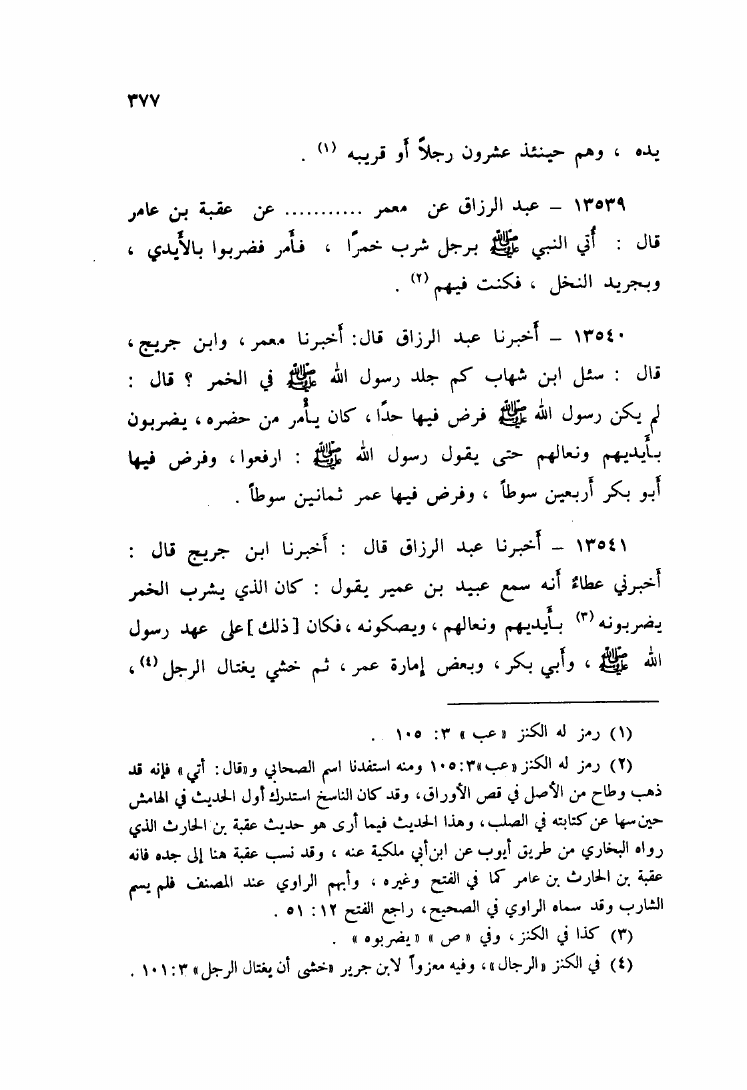 ٣٧٧
يده ، وهم حينئذ عشرون رجلاً أو قريبه (١) .
١٣٥٣٩ – عبد الرزاق عن معمر ........... عن عقبة بن عامر
قال : أُتي النبي ﷺ برجل شرب خمرًا ، فأمر فضربوا بالأيدي ،
وبجريد النخل ، فكنت فيهم (٢) .
١٣٥٤٠ – أخبرنا عبد الرزاق قال: أخبرنا معمر ، وابن جريج ،
قال : سئل ابن شهاب كم جلد رسول الله ﷺ في الخمر ؟ قال :
لم يكن رسول الله ﷺ فرض فيها حدًا ، كان يأمر من حضره ، يضربون
بأيديهم ونعالهم حتى يقول رسول الله ﷺ : ارفعوا ، وفرض فيها
أبو بكر أربعين سوطاً ، وفرض فيها عمر ثمانين سوطاً .
١٣٥٤١ – أخبرنا عبد الرزاق قال : أخبرنا ابن جريج قال :
أخبرني عطاءٌ أنه سمع عبيد بن عمير يقول : كان الذي يشرب الخمر
يضربونه (٣) بأيديهم ونعالهم ، ويصكونه ، فكان [ ذلك ] على عهد رسول
الله ﷺ ، وأبي بكر ، وبعض إمارة عمر ، ثم خشي يغتال الرجل (٤) ،
(١) رمز له الكنز «عب» ٣: ١٠٥ .
(٢) رمز له الكنز «عب»٣:١٠٥ ومنه استفدنا اسم الصحابي و«قال: أتي» فإنه قد
ذهب وطاح من الأصل في قص الأوراق، وقد كان الناسخ استدرك أول الحديث في الهامش
حين سها عن كتابته في الصلب، وهذا الحديث فيما أرى هو حديث عقبة بن الحارث الذي
رواه البخاري من طريق أيوب عن ابن أبي ملكية عنه ، وقد نسب عقبة هنا إلى جده فانه
عقبة بن الحارث بن عامر كما في الفتح وغيره ، وأبهم الراوي عند المصنف فلم يسم
الشارب وقد سماه الراوي في الصحيح، راجع الفتح ١٢: ٥١ .
(٣) كذا في الكنز، وفي «ص» «يضربوه» .
(٤) في الكنز «الرجال»، وفيه معزواً لابن جرير «خشى أن يغتال الرجل» ٣: ١٠١ .